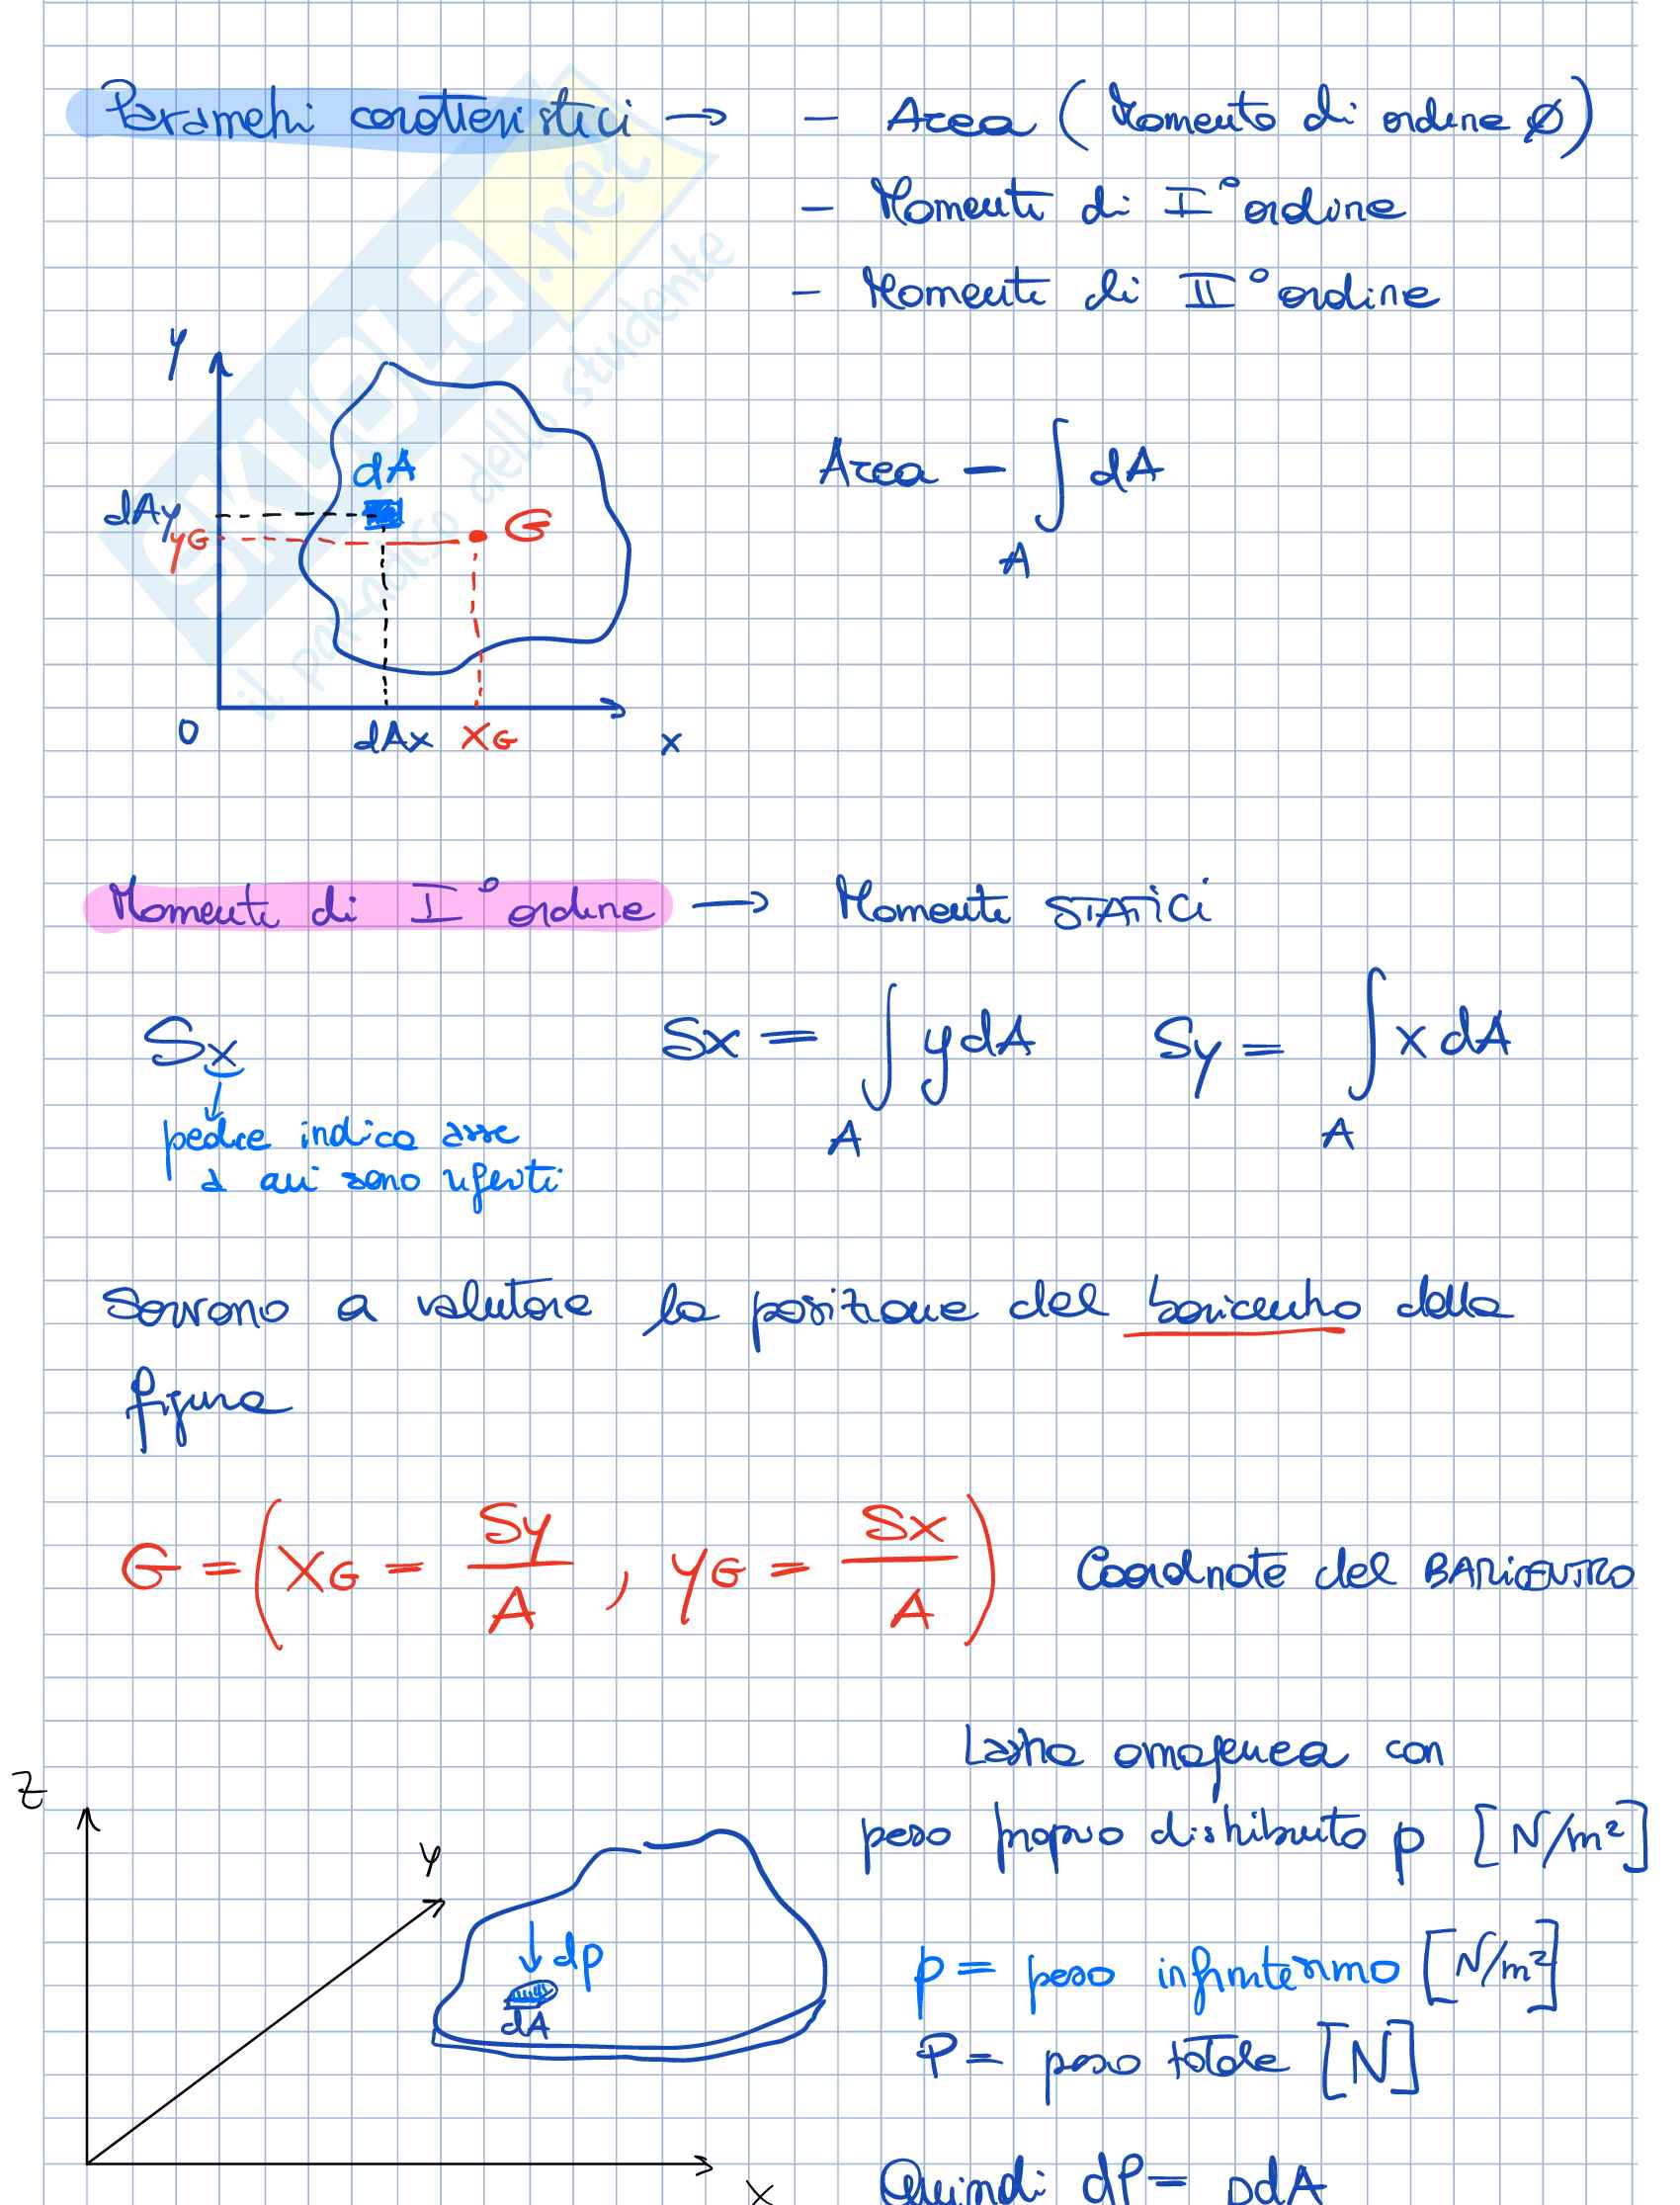 Parametri caratteristici → - Area (Momento di ordine Ø)
- Momenti di I° ordine
- Momenti di II° ordine
y
dA
dAy
yG
G
0
dAx
xG
x
Area - ∫ dA
A
Momenti di I° ordine → Momenti STATICI
Sx
Sx = ∫ y dA Sy = ∫ x dA
A A
pedice indica asse
a cui sono riferiti
Servono a valutare la posizione del baricentro della
figura
G = (xG = Sy/A , yG = Sx/A) Coordinate del BARICENTRO
Lastra omogenea con
peso proprio distribuito p [N/m²]
z
y
dp
dA
x
p = peso infinitesimo [N/m²]
P = peso totale [N]
Quindi dP = pdA
SKUOLA.net
il paradiso dello studente